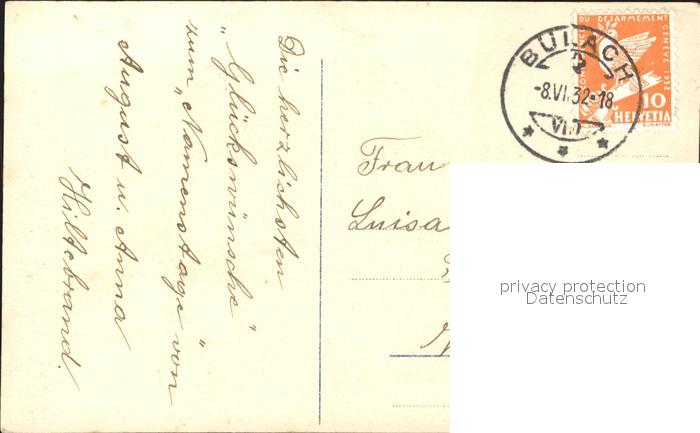 Die herzlichsten
"Glückswünsche"
zum "Namenstage" von
August u. Anna
Hiltebrand.
BÜLACH
-8.VI.32-18
VI.
DU DESARMEMENT
GENÈVE 1932
10
HELVETIA
Frau
Luisa
privacy protection
Datenschutz